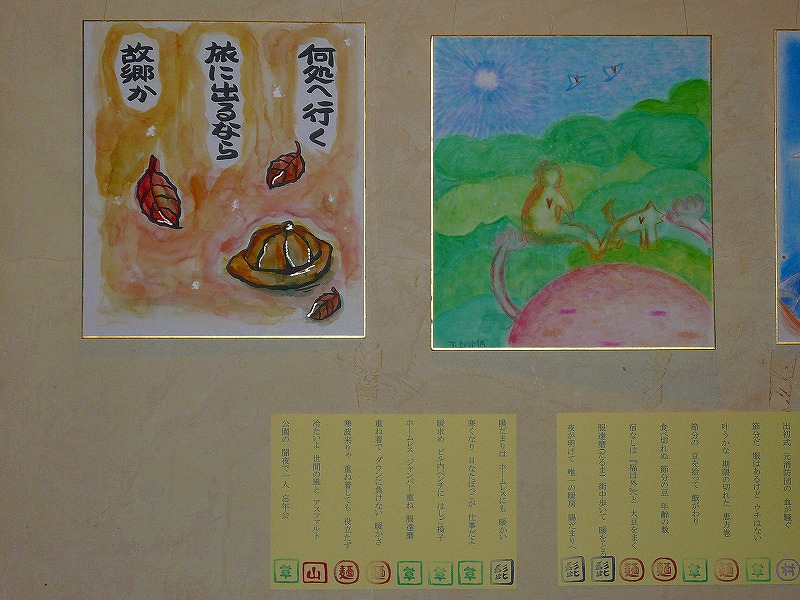 何処へ行く
旅に出るなら
故郷か
T NOMA
陽だまりは ホームレスにも 暖かい
寒くなり 日なたぼっこが 仕事だよ
暖求め ビル内ベンチに はしご椅子
ホームレス ジャンバー重ね 服達磨
重ね着で ダウンに負けない 暖かさ
寒波来りゃ 重ね着しても 役立たず
冷たいよ 世間の風と アスファルト
公園の 闇夜で一人 忘年会
髭
章
章
章
麺
麺
山
章
出初式 元消防団の 血が騒ぐ
節分だ 服はあるけど ウチはない
叶うかな 期限の切れた 恵方巻
節分の 豆を拾って 飯がわり
食べ切れぬ 節分の豆 年齢の数
宿なしは 『福は外』と 大豆をまく
服達磨(だるま) 街中歩いて 暖をとる
夜が明けて 唯一の暖房 陽だまりへ
村
章
麺
章
麺
麺
髭
髭